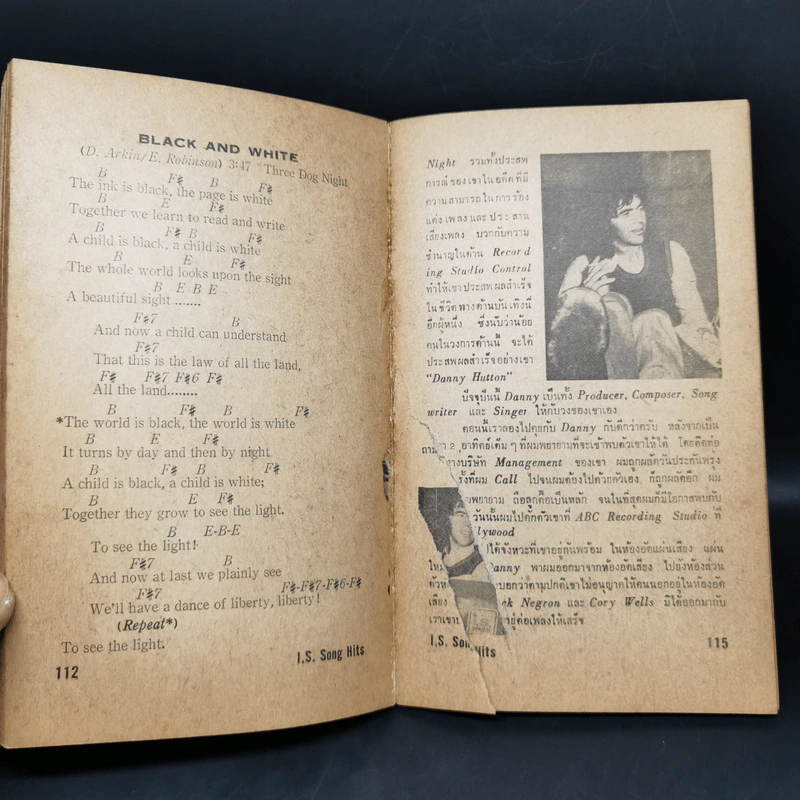 BLACK AND WHITE
(D. Arkin/E. Robinson) 3:47 Three Dog Night
B F# B F#
The ink is black, the page is white
B E F#
Together we learn to read and write
B F# B F#
A child is black, a child is white
B E F#
The whole world looks upon the sight
B E B E
A beautiful sight.......
F#7 B
And now a child can understand
F#7
That this is the law of all the land,
F# F#7 F#6 F#
All the land........
B F# B F#
*The world is black, the world is white
B E F#
It turns by day and then by night
B F# B F#
A child is black, a child is white;
B E F#
Together they grow to see the light.
B E-B-E
To see the light!
F#7 B
And now at last we plainly see
F#7 F#-F#7-F#6-F#
We'll have a dance of liberty, liberty!
(Repeat*)
To see the light.
I.S. Song Hits
112
Night รวมทั้งประสพ
การณ์ของเขาในอดีตที่มี
ความสามารถในการร้อง
แต่งเพลงและประสาน
เสียงเพลง บวกกับความ
ชำนาญในด้าน Record
ing Studio Control
ทำให้เขาประสพผลสำเร็จ
ในชีวิตทางด้านบันเทิงนี้
อีกผู้หนึ่ง ซึ่งนับว่าน้อย
คนในวงการด้านนี้ จะได้
ประสพผลสำเร็จอย่างเขา
"Danny Hutton"
ปัจจุบันนี้ Danny เป็นทั้ง Producer, Composer, Song
writer และ Singer ให้กับวงของเขาเอง
ตอนนี้เราลองไปคุยกับ Danny กันดีกว่าครับ หลังจากเป็น
2 อาทิตย์เต็มๆ ที่ผมพยายามที่จะเข้าพบตัวเขาให้ได้ โดยติดต่อ
ทางบริษัท Management ของเขา ผมถูกผลัดวันประกันพรุ่ง
ครั้งที่ผม Call ไปจนผมต้องไปด้วยตัวเอง ก็ถูกผลัดอีก ผม
พยายาม ถือลูกตื๊อเป็นหลัก จนในที่สุดผมก็มีโอกาสพบกับ
วันนั้นผมไปดักตัวเขาที่ ABC Recording Studio ที่
lywood
ได้จังหวะที่เขาอยู่กันพร้อม ในห้องอัดแผ่นเสียง แผ่น
ใหม่ Danny พาผมออกมาจากห้องอัดเสียง ไปยังห้องส่วน
ตัว บอกว่าตามปกติเขาไม่อนุญาตให้คนนอกอยู่ในห้องอัด
เสียง ck Negron และ Cory Wells มิได้ออกมากับ
เรา อยู่ต่อเพลงให้เสร็จ
I.S. Son Hits
115